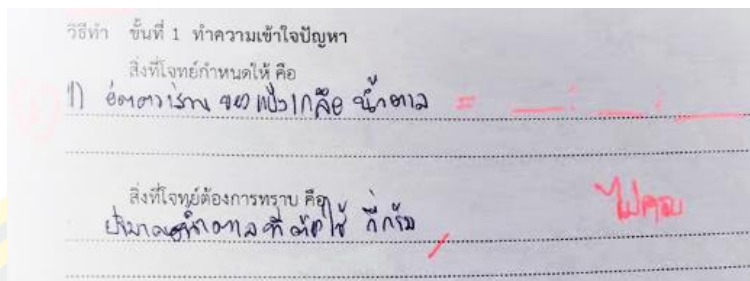 วิธีทำ ขั้นที่ 1 ทำความเข้าใจปัญหา
สิ่งที่โจทย์กำหนดให้ คือ
1) อัตราส่วน ของ แป้ง เกลือ น้ำตาล = __ : __ : __
สิ่งที่โจทย์ต้องการทราบ คือ
ไม่ครบ
ปริมาณน้ำตาลที่ต้องใช้ กี่กรัม /